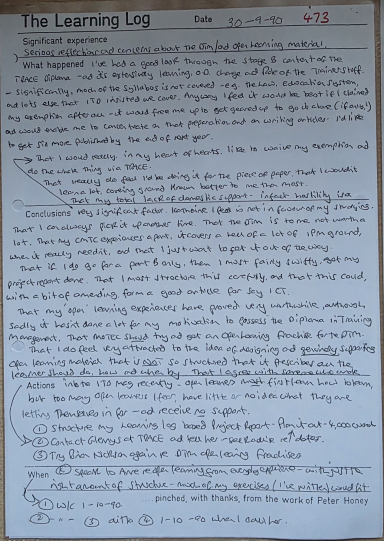 The Learning Log Date 30-9-90 473
Significant experience
Serious reflections and concerns about the Dim/and open learning material.
What happened I've had a good look through the stage B content of the
TRACE diploma - and it's extensively learning, O.D. change and role of the Trainer stuff.
- Significantly, much of the syllabus is not covered - e.g. the Law, Education system,
and lots else that ITD insisted we cover. Anyway I feel it would be best if I claimed
my exemption after all - it would free me up to get geared up to go it alone (if available!)
and would enable me to concentrate on that preparation and on writing articles - I'd like
to get six more published by the end of next year.
→ That I would really, in my heart of hearts, like to waive my exemption and
do the whole thing via TRACE.
That really do feel I'd be doing it for the piece of paper, that I wouldn't
learn a lot, covering ground known better to me than most.
That my total lack of domestic support - infact hostility is a
Conclusions very significant factor. Hermoine I feel is not in favour of my studying.
That I can always pick it up another time. That the Dim is to me not worth a
lot. That my CMTC experience apart, it covers a hell of a lot of IPM ground,
when it really needn't, and that I just want to get it out of the way.
That if I do go for a part B only, then I must fairly swiftly get my
project report done. That I must structure this carefully, and that this could,
with a bit of amending, form a good article for say ICT.
That my open learning experiences have proved very worthwhile, although
sadly it hasn't done a lot for my motivation to possess the Diploma in Training
Management. That MOTEC should try and get an open learning franchise for the Dim.
That I do feel very attracted to the idea of designing and genuinely supporting
open learning material that is not so structured that it prescribes all the
learner should do, how and when by. That I agree with someone who wrote
Actions into ITD mag recently - open learners must first learn how to learn,
but too many open learners I fear, have little or no idea what they are
letting themselves in for - and receive no support.
① Structure my Learning Log based Project Report - Plan it out - 4,000 words
② Contact Glenys at TRACE and tell her - see Radice re updates.
③ Try Brian Wilson again re Dim open learning franchises
When ④ Speak to Anne re open learning from everyday experience - with just the
right amount of structure - much of my exercises (I've written) would fit
① W/C 1-10-90 ...pinched, with thanks, from the work of Peter Honey
② -"- ③ ditto ④ 1-10-90 when I call her.